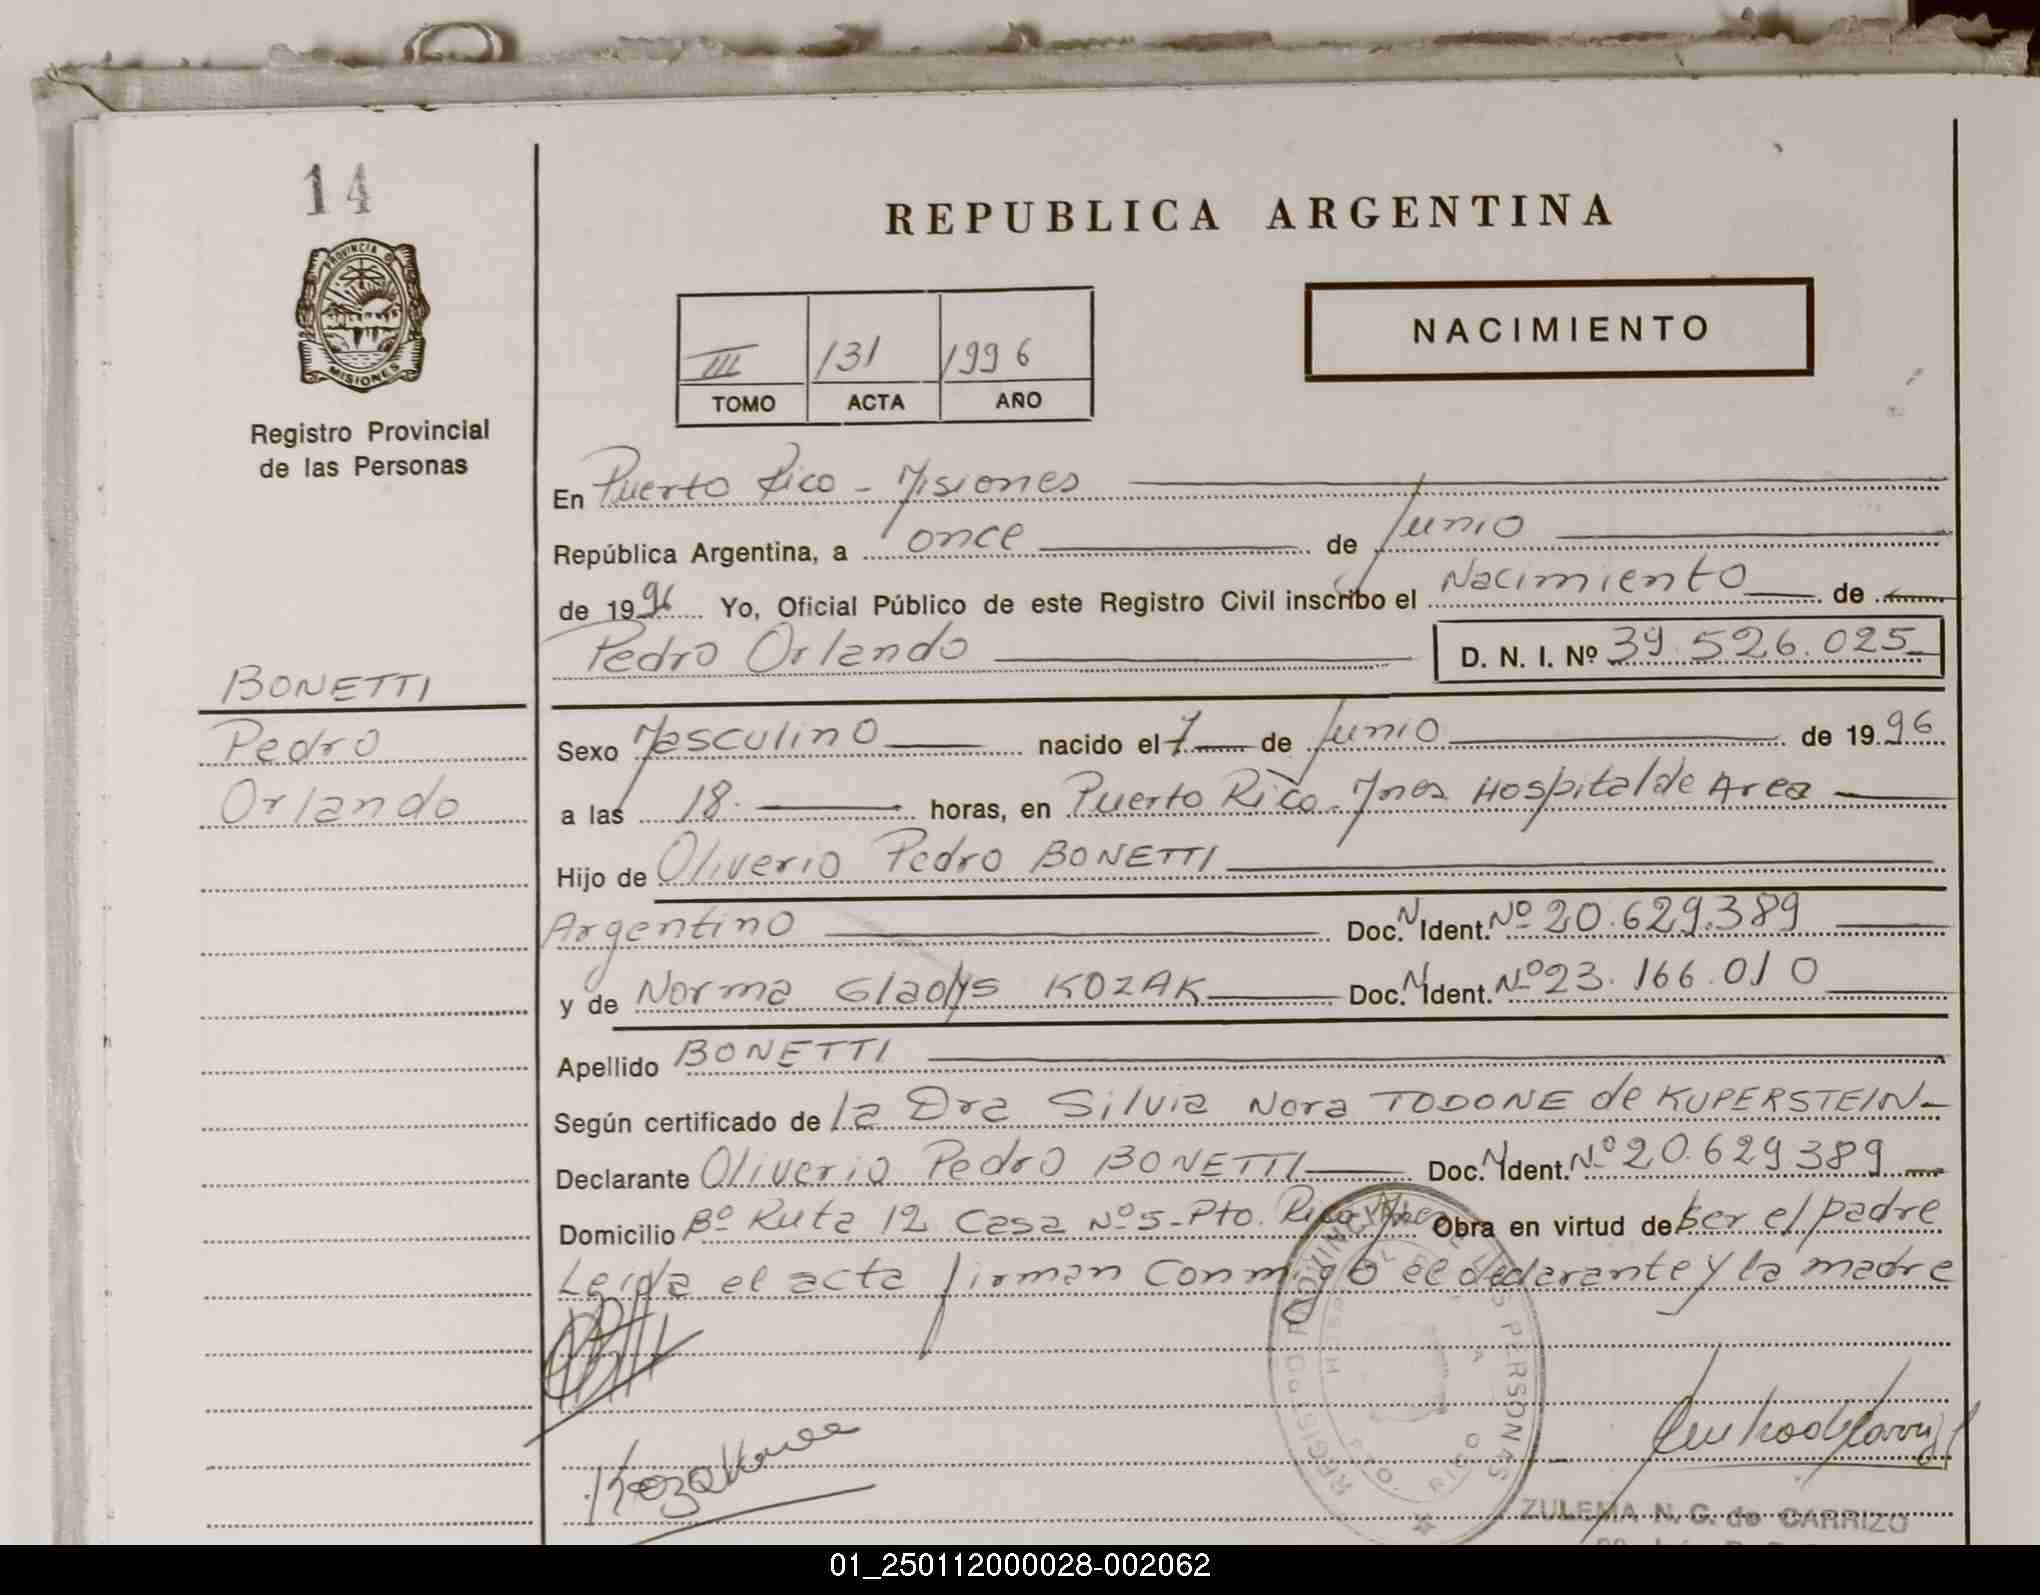 14
REPUBLICA ARGENTINA
PROVINCIA D
MISIONES
Registro Provincial
de las Personas
III 131 1996
TOMO ACTA AÑO
NACIMIENTO
En Puerto Rico - Misiones
República Argentina, a once de Junio
de 1996 Yo, Oficial Público de este Registro Civil inscribo el Nacimiento de
Pedro Orlando D. N. I. Nº 39.526.025
BONETTI
Pedro
Orlando
Sexo Masculino nacido el 7 de Junio de 1996
a las 18 horas, en Puerto Rico - Mnes Hospital de Area
Hijo de Oliverio Pedro BONETTI
Argentino Doc. N Ident. Nº 20.629.389
y de Norma Gladys KOZAK Doc. N Ident. Nº 23.166.010
Apellido BONETTI
Según certificado de la Dra Silvia Nora TODONE de KUPERSTEIN-
Declarante Oliverio Pedro BONETTI Doc. N Ident. Nº 20.629389
Domicilio Bº Ruta 12 Casa Nº 5 - Pto. Rico Mnes Obra en virtud de ser el padre
Leída el acta firman conmigo el declarante y la madre
REGISTRO PROVINCIAL DE LAS PERSONAS
PTO. RICO
ZULEMA N. G. de CARRIZO
01_250112000028-002062